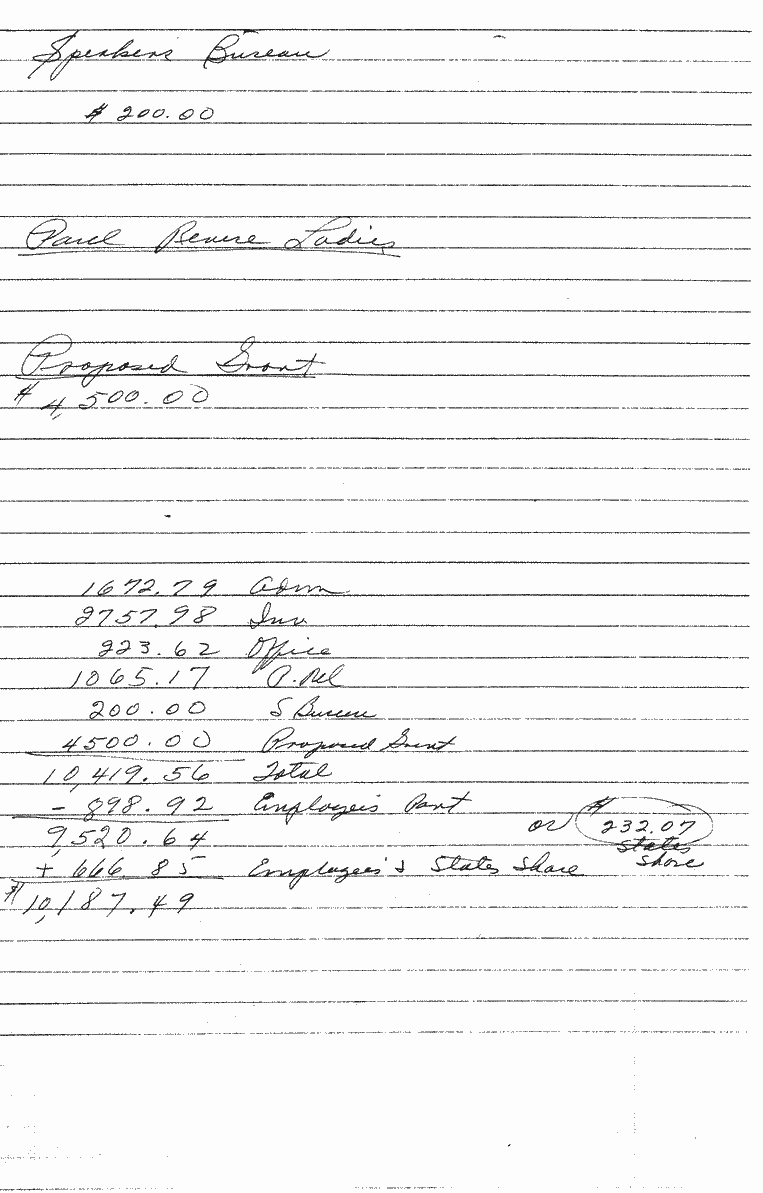 Speakers Bureau
$ 200.00
Paul Revere Ladies
Proposed Grant
$ 4,500.00
1672.79 Adm
2757.98 Inv
223.62 Office
1065.17 P. Rel
200.00 S Bureau
4500.00 Proposed Grant
10,419.56 Total
- 898.92 Employee's Part
9,520.64 or $ 232.07 States Share
+ 666.85 Employee's & States Share
$ 10,187.49